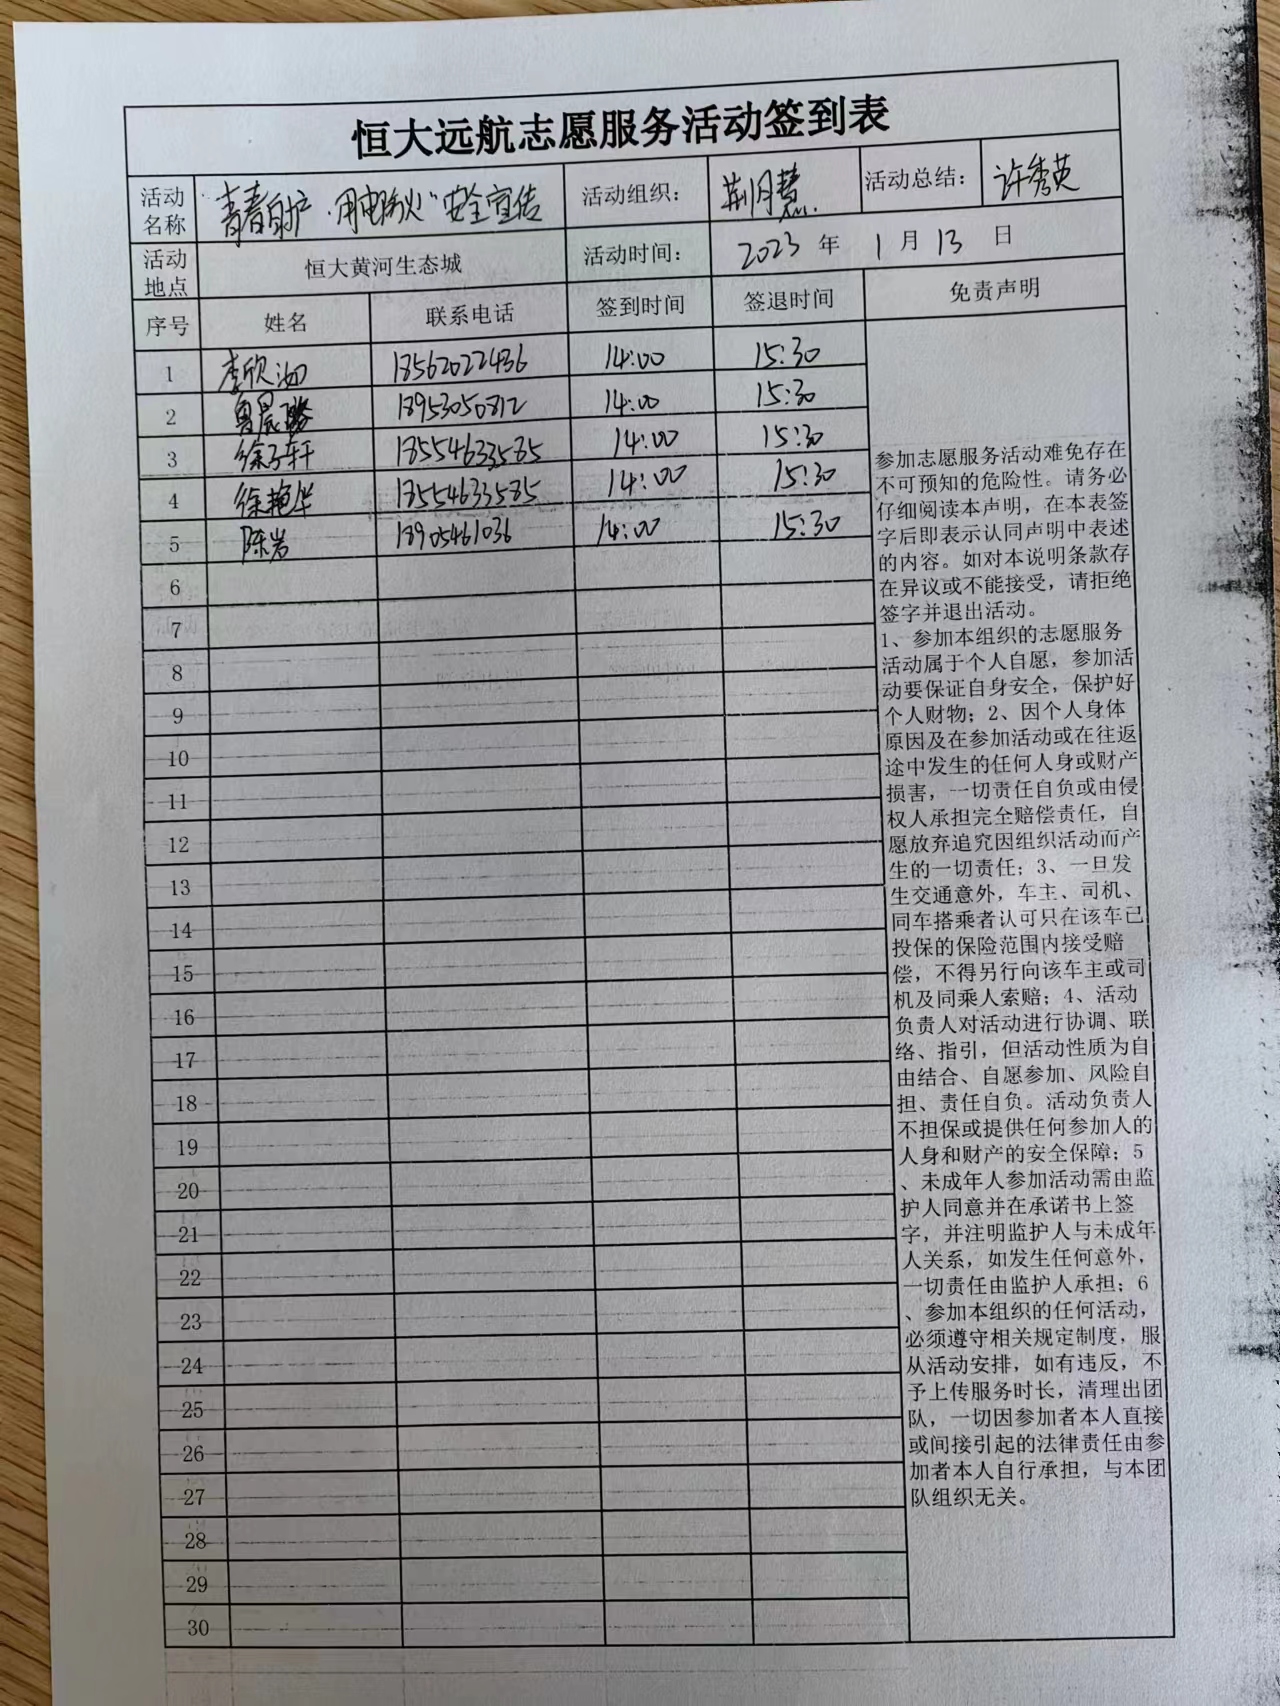 恒大远航志愿服务活动签到表
活动名称 青春自护·用电防火"安全宣传 活动组织： 荆月慧 活动总结： 许秀英
活动地点 恒大黄河生态城 活动时间： 2023 年 1 月 13 日
序号 姓名 联系电话 签到时间 签退时间 免责声明
1 李欣汕 18562022436 14:00 15:30
2 鲁晨 18953050812 14:00 15:30
3 徐子轩 18554633585 14:00 15:30
4 徐艳华 18554633585 14:00 15:30
5 陈岩 18905461036 14:00 15:30
6
7
8
9
10
11
12
13
14
15
16
17
18
19
20
21
22
23
24
25
26
27
28
29
30
参加志愿服务活动难免存在
不可预知的危险性。请务必
仔细阅读本声明，在本表签
字后即表示认同声明中表述
的内容。如对本说明条款存
在异议或不能接受，请拒绝
签字并退出活动。
1、参加本组织的志愿服务
活动属于个人自愿，参加活
动要保证自身安全，保护好
个人财物；2、因个人身体
原因及在参加活动或在往返
途中发生的任何人身或财产
损害，一切责任自负或由侵
权人承担完全赔偿责任，自
愿放弃追究因组织活动而产
生的一切责任；3、一旦发
生交通意外，车主、司机、
同车搭乘者认可只在该车已
投保的保险范围内接受赔
偿，不得另行向该车主或司
机及同乘人索赔；4、活动
负责人对活动进行协调、联
络、指引，但活动性质为自
由结合、自愿参加、风险自
担、责任自负。活动负责人
不担保或提供任何参加人的
人身和财产的安全保障；5
、未成年人参加活动需由监
护人同意并在承诺书上签
字，并注明监护人与未成年
人关系，如发生任何意外，
一切责任由监护人承担；6
、参加本组织的任何活动，
必须遵守相关规定制度，服
从活动安排，如有违反，不
予上传服务时长，清理出团
队，一切因参加者本人直接
或间接引起的法律责任由参
加者本人自行承担，与本团
队组织无关。